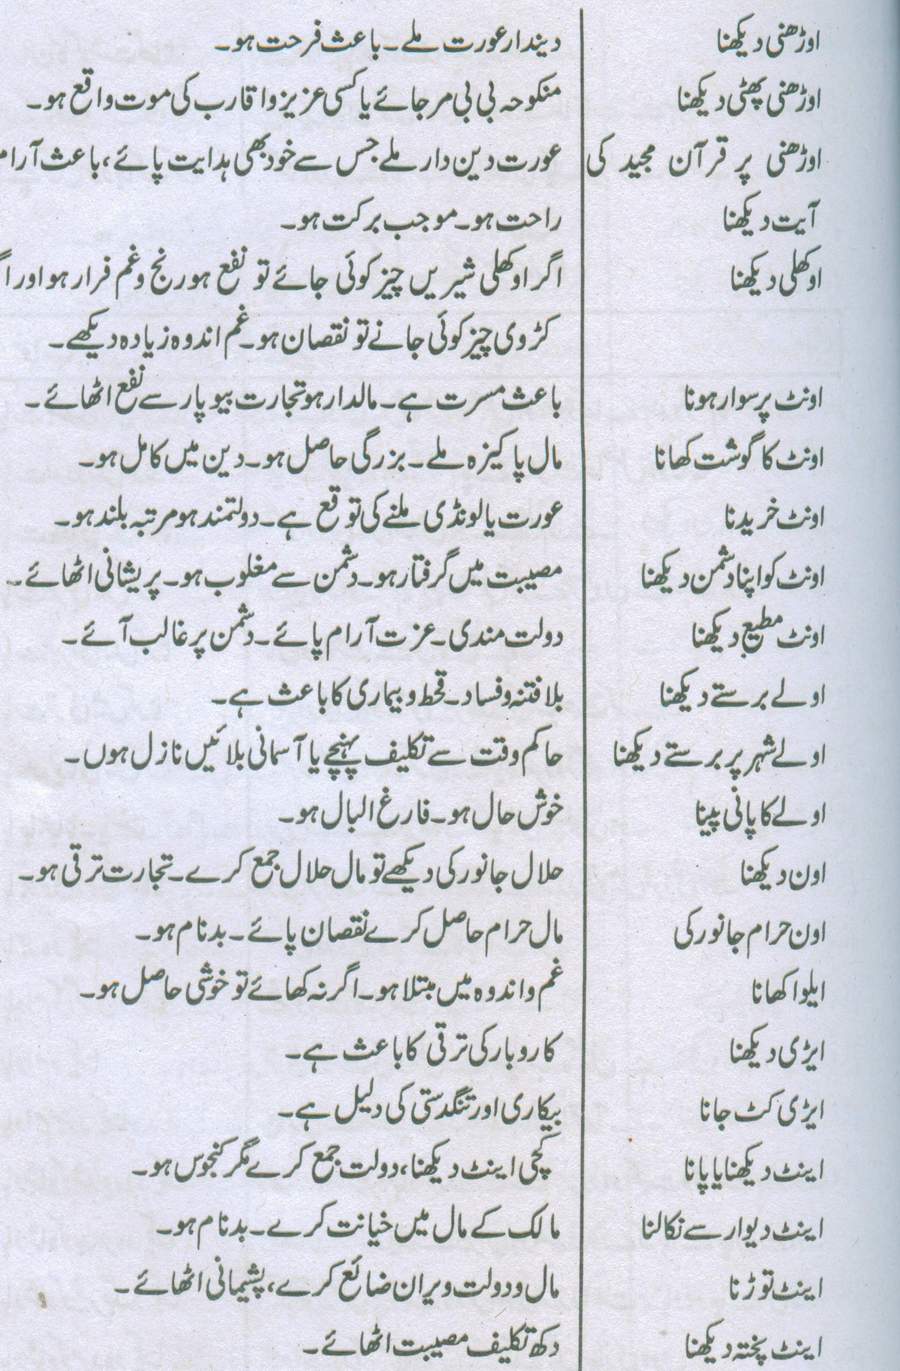 اوڑھنی دیکھنا دیندار عورت ملے۔ باعث فرحت ہو۔
اوڑھنی پھٹی دیکھنا منکوحہ بی بی مر جائے یا کسی عزیز و اقارب کی موت واقع ہو۔
اوڑھنی پر قرآن مجید کی عورت دین دار ملے جس سے خود بھی ہدایت پائے، باعث آرام
آیت دیکھنا راحت ہو۔ موجب برکت ہو۔
اوکھلی دیکھنا اگر اوکھلی شیریں چیز کوئی جائے تو نفع ہو رنج و غم فرار ہو اور
کڑوی چیز کوئی جانے تو نقصان ہو۔ غم اندوہ زیادہ دیکھے۔
اونٹ پر سوار ہونا باعث مسرت ہے۔ مالدار ہو تجارت بیوپار سے نفع اٹھائے۔
اونٹ کا گوشت کھانا مال پاکیزہ ملے۔ بزرگی حاصل ہو۔ دین میں کامل ہو۔
اونٹ خریدنا عورت یا لونڈی ملنے کی توقع ہے۔ دولتمند ہو مرتبہ بلند ہو۔
اونٹ کو اپنا دشمن دیکھنا مصیبت میں گرفتار ہو۔ دشمن سے مغلوب ہو۔ پریشانی اٹھائے۔
اونٹ مطیع دیکھنا دولت مندی۔ عزت آرام پائے۔ دشمن پر غالب آئے۔
اولے برستے دیکھنا بلا فتنہ و فساد۔ قحط و بیماری کا باعث ہے۔
اولے شہر پر برستے دیکھنا حاکم وقت سے تکلیف پہنچے یا آسمانی بلائیں نازل ہوں۔
اولے کا پانی پینا خوش حال ہو۔ فارغ البال ہو۔
اون دیکھنا حلال جانور کی دیکھے تو مال حلال جمع کرے۔ تجارت ترقی ہو۔
اون حرام جانور کی مال حرام حاصل کرے نقصان پائے۔ بدنام ہو۔
ایلوا کھانا غم و اندوہ میں مبتلا ہو۔ اگر نہ کھائے تو خوشی حاصل ہو۔
ایڑی دیکھنا کاروبار کی ترقی کا باعث ہے۔
ایڑی کٹ جانا بیکاری اور تنگدستی کی دلیل ہے۔
اینٹ دیکھنا یا پانا کچی اینٹ دیکھنا، دولت جمع کرے مگر کنجوس ہو۔
اینٹ دیوار سے نکالنا مالک کے مال میں خیانت کرے۔ بدنام ہو۔
اینٹ توڑنا مال و دولت ویران ضائع کرے، پشیمانی اٹھائے۔
اینٹ پختہ دیکھنا دکھ تکلیف مصیبت اٹھائے۔